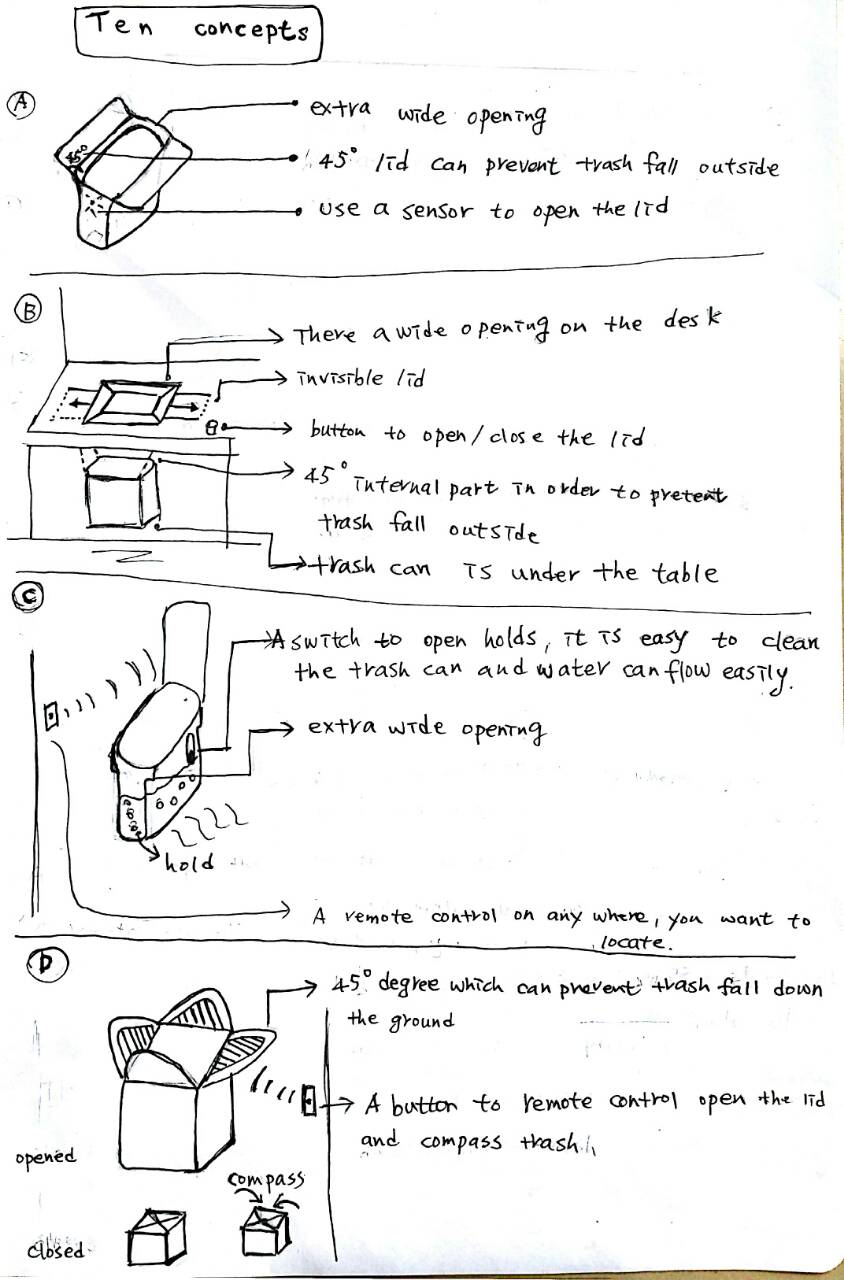 Ten concepts
A
45°
extra wide opening
45° lid can prevent trash fall outside
use a sensor to open the lid
B
There a wide opening on the desk
invisible lid
button to open/close the lid
45° internal part in order to pretent
trash fall outside
trash can is under the table
C
A switch to open holds, it is easy to clean
the trash can and water can flow easily.
extra wide opening
hold
A remote control on any where, you want to
locate.
D
45° degree which can prevent trash fall down
the ground
A button to remote control open the lid
and compass trash.
opened
compass
closed